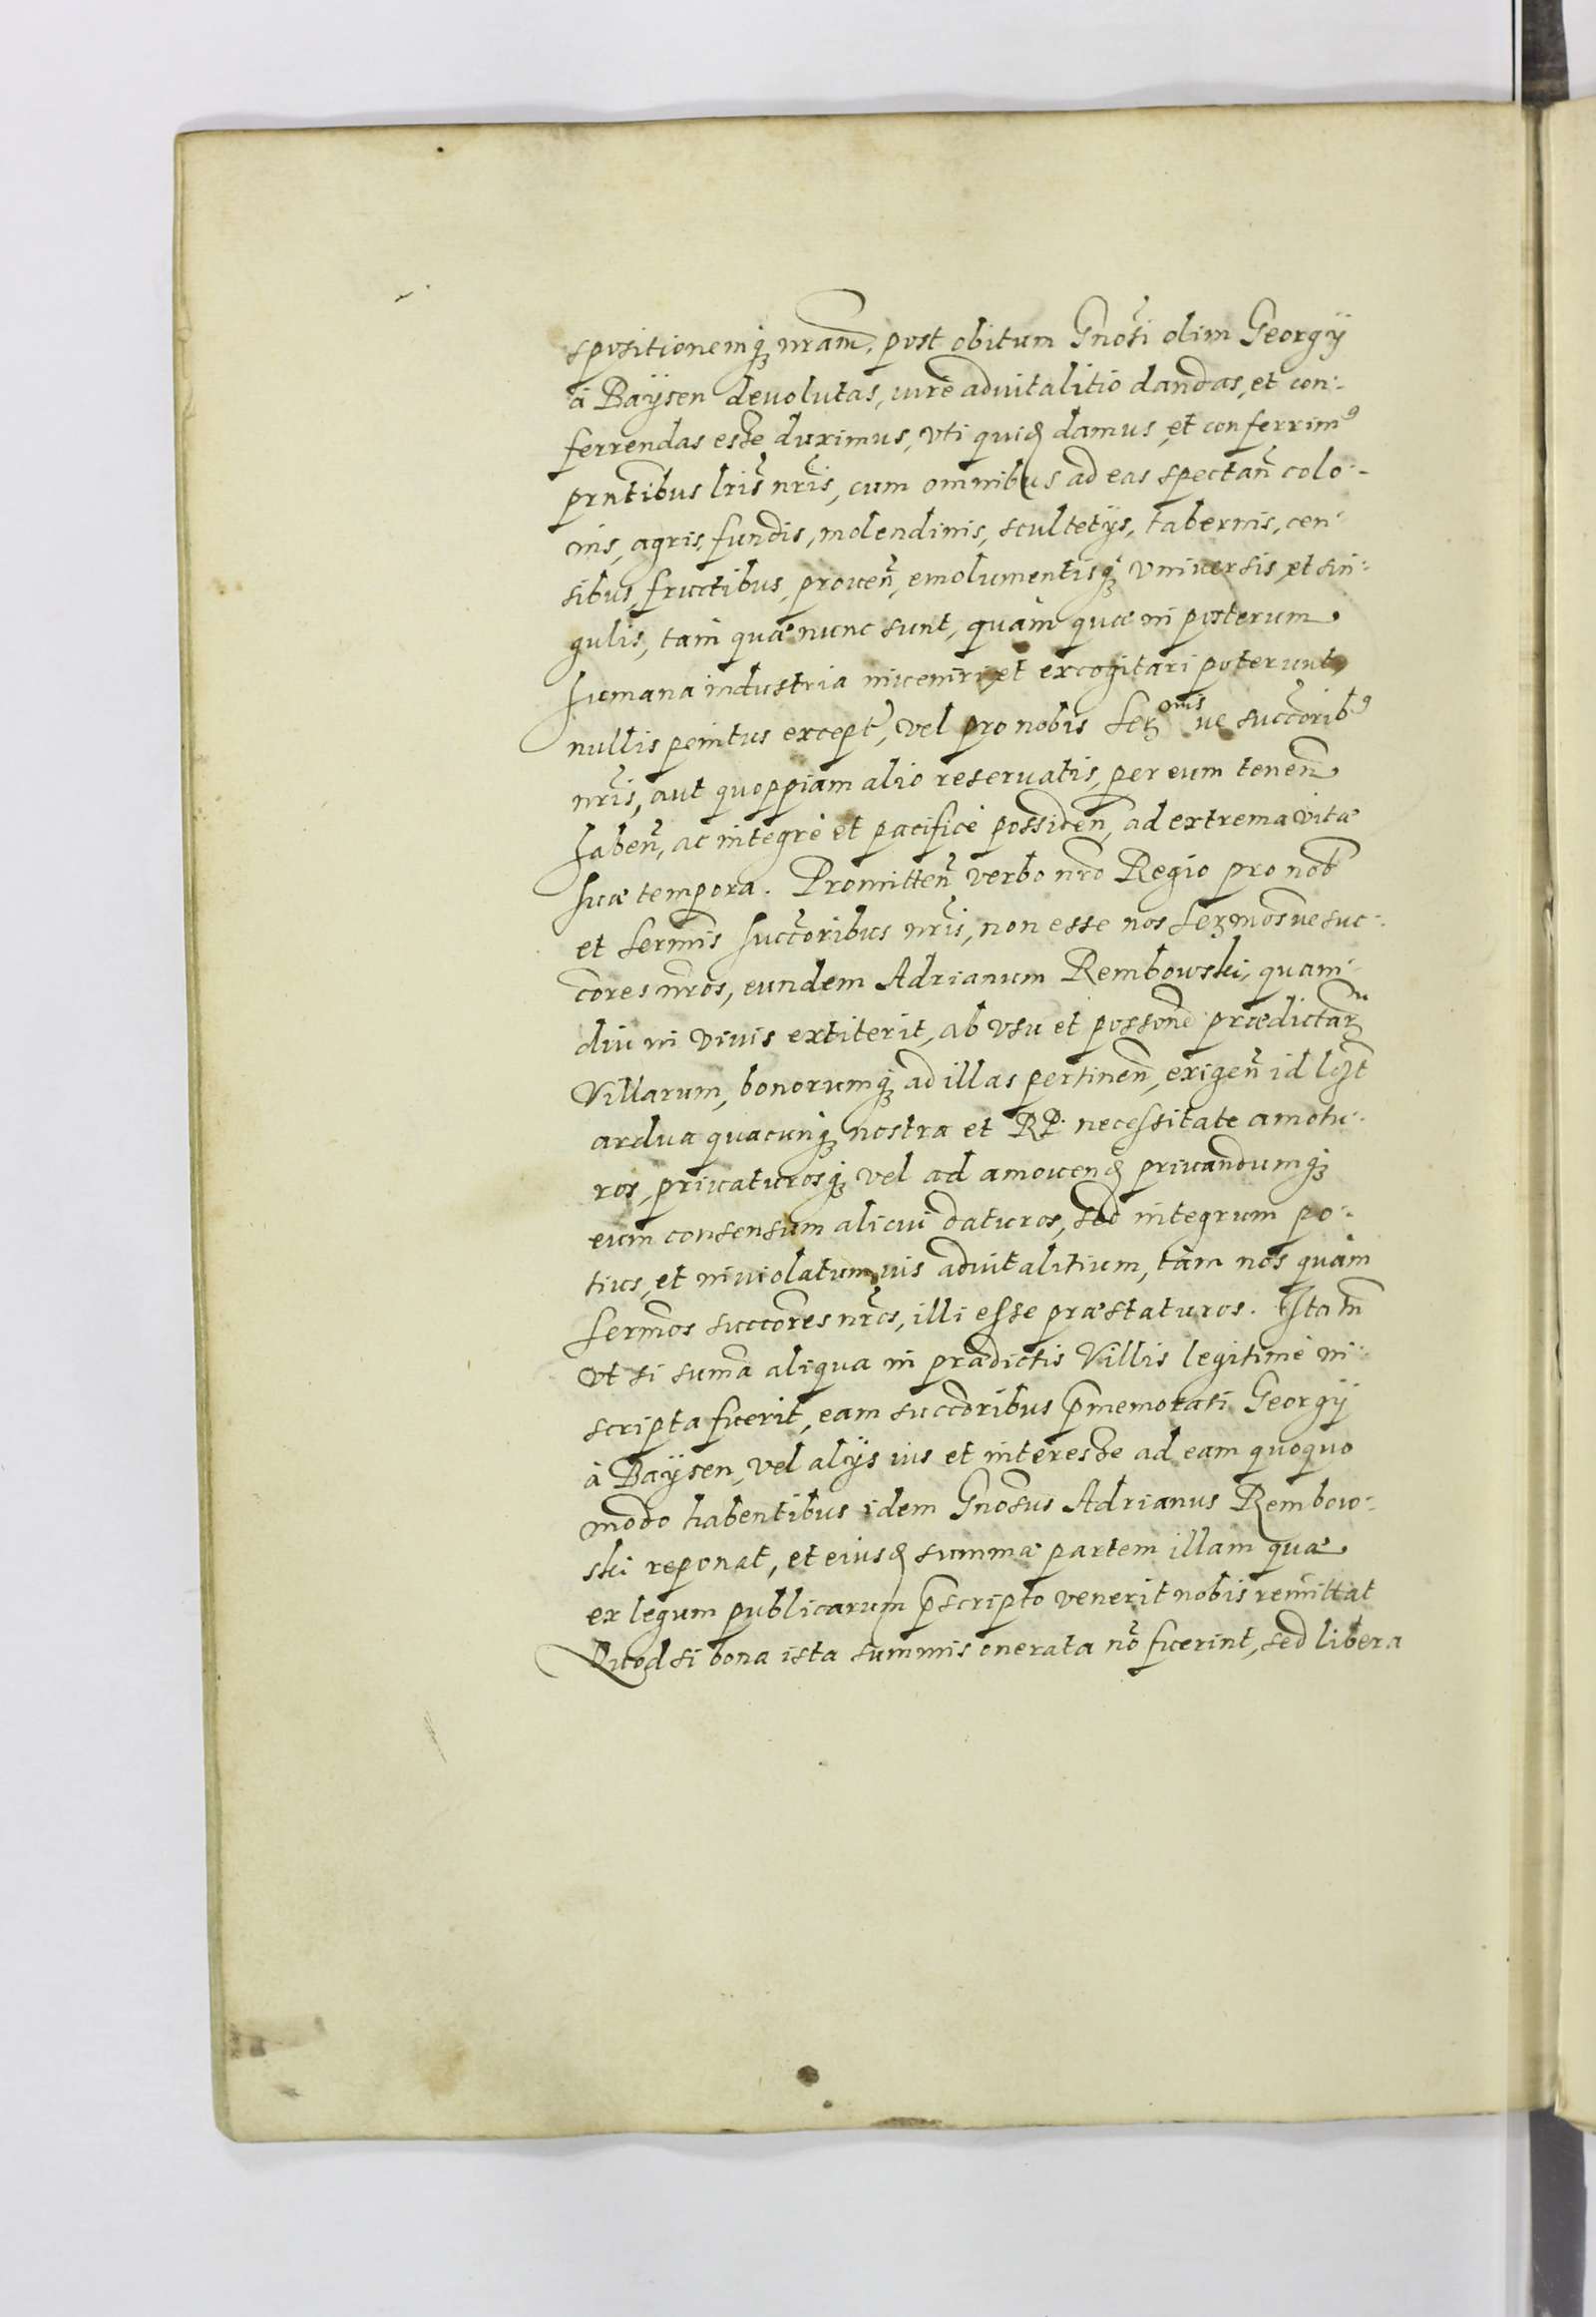 spositionemq́ꝫ nrãm. post obitum Gnosi̇̃ olim Georgÿ
à Baÿsen deuolutas, iure aduitalitio dandas, et con-
ferrendas esse duximus, vti quidẽ damus, et conferrimꝰ
prntĩbus lri̇̃s nri̇̃s, cum omnibus ad eas spectañ colo-
nis, agris, fundis, molendinis, scultetÿs, tabernis, cen-
sibus, fructibus, proueñ, emolumentisq́ꝫ vniuersis et sin-
gulis, tam quæ nunc sunt, quàm quæ in posterum
humana industria inueniri et excogitari poterunt,
nullis penitus except̃, vel pro nobis Serᵐⁱˢ ue succõribꝰ
nri̇̃s, aut quoppiam alio reseruatis, per eum teneñ
habeñ, ac integrè et pacificè possideñ, ad extrema vitæ
suæ tempora. Promitteñ verbo nrõ Regio pro nob̃
et Sermi̇̃s succõribus nri̇̃s, non esse nos Serm̃osue suc-
cõres nrõs, eundem Adrianum Rembowski, quam-
diu in viuis extiterit, ab vsu et possonẽ prædictarᵐ
Villarum, bonorumq́ꝫ ad illas pertineñ, exigeñ id lict̃
ardua quacunq́ꝫ nostra et RP. necessitate amotu-
ros, priuaturosq́ꝫ vel ad amouendũ priuandumq́ꝫ
eum consensum alicui daturos, sed integrum po-
tius, et inuiolatum ius aduitalitium, tàm nos quàm
Sermõs succõres nrõs, illi esse præstaturos. Ita tñ
vt si sumã aliqua in prædictis Villis legitimè in-
scripta fuerit, eam succõribus p̃memorati Georgÿ
à Baÿsen, vel alÿs ius et interesse ad eam quoquo
modo habentibus idem Gnosũs Adrianus Rembow-
ski reponat, et eiusdẽ summæ partem illam quæ
ex legum publicarum p̃scripto venerit nobis remittat
Quod si bona ista summis onerata nõ fuerint, sed libera